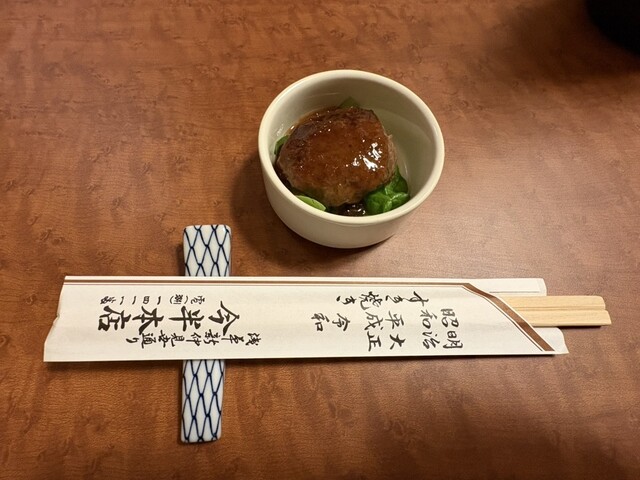 明治 大正
昭和 平成 令和
すき焼き
浅草新仲見世通り
今半本店
一四一一番